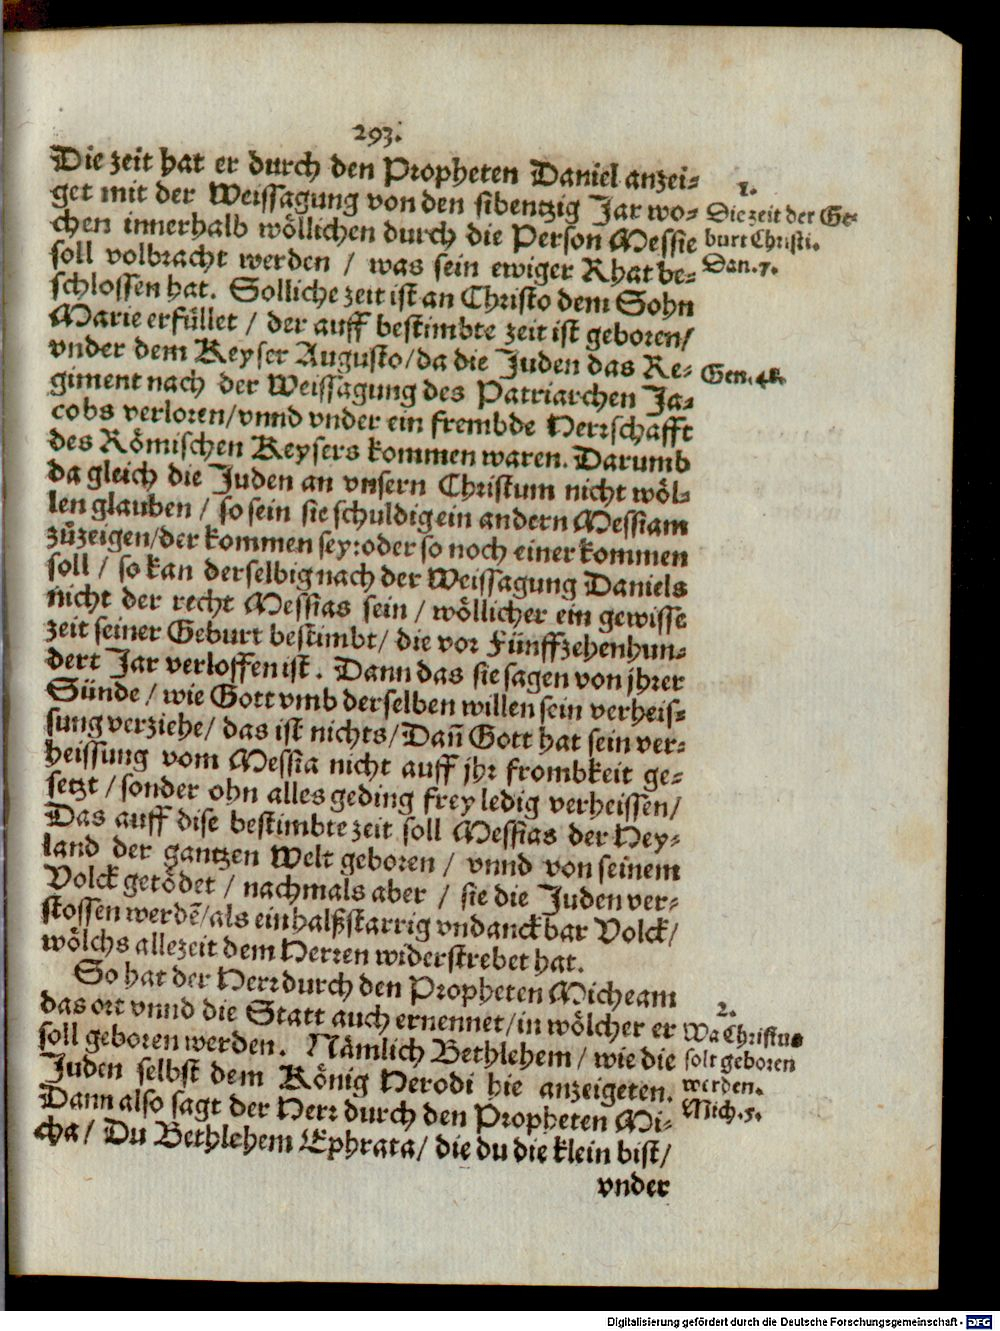 293.
Die zeit hat er durch den Propheten Daniel anzei-
get mit der Weissagung von den sibentzig Jar wo-
chen innerhalb wöllichen durch die Person Messie
soll volbracht werden / was sein ewiger Rhat be-
schlossen hat. Solliche zeit ist an Christo dem Sohn
Marie erfüllet / der auff bestimbte zeit ist geboren/
vnder dem Keyser Augusto/da die Juden das Re-
giment nach der Weissagung des Patriarchen Ja-
cobs verloren/vnnd vnder ein frembde Herrschafft
des Römischen Keysers kommen waren. Darumb
da gleich die Juden an vnsern Christum nicht wöl-
len glauben / so sein sie schuldig ein andern Messiam
zůzeigen/der kommen sey:oder so noch einer kommen
soll / so kan derselbig nach der Weissagung Daniels
nicht der recht Messias sein / wöllicher ein gewisse
zeit seiner Geburt bestimbt/ die vor Fünffzehenhun-
dert Jar verloffen ist. Dann das sie sagen von jhrer
Sünde / wie Gott vmb derselben willen sein verheis-
sung verziehe/ das ist nichts/ Dañ Gott hat sein ver-
heissung vom Messia nicht auff jhr frombkeit ge-
setzt / sonder ohn alles geding frey ledig verheissen/
Das auff dise bestimbte zeit soll Messias der Hey-
land der gantzen Welt geboren / vnnd von seinem
Volck getödet / nachmals aber / sie die Juden ver-
stossen werdē/als ein halßstarrig vndanckbar Volck/
wölchs allezeit dem Herren widerstrebet hat.
So hat der Herr durch den Propheten Micheam
das ort vnnd die Statt auch ernennet/in wölcher er
soll geboren werden. Nämlich Bethlehem / wie die
Juden selbst dem König Herodi hie anzeigeten.
Dann also sagt der Herr durch den Propheten Mi-
cha/ Du Bethlehem Ephrata/ die du die klein bist/
vnder
1.
Die zeit der Ge-
burt Christi.
Dan. 7.
Gen. 48.
2.
Wa Christus
solt geboren
werden.
Mich. 5.
Digitalisierung gefördert durch die Deutsche Forschungsgemeinschaft - DFG